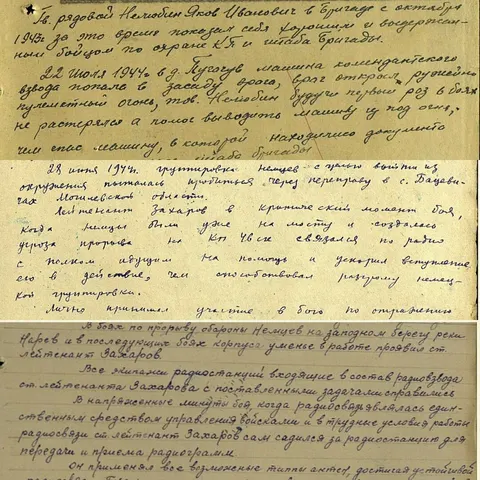 Гв. рядовой Нелюбин Яков Иванович в бригаде с октября
1943г за это время показал себя хорошим и выдержан-
ным бойцом по охране КП и штаба бригады.
22 июля 1944г в д. Пугочув машина комендантского
взвода попала в засаду врага, враг открыл ружейно
пулеметный огонь, тов. Нелюбин будучи первый раз в боях
не растерялся а помог выводить машину из под огня,
чем спас машину, в которой находились документы
штаба бригады
28 июня 1944г. группировка немцев с целью выйти из
окружения пыталась пробиться через переправу в с. Бацеви-
чах Могилевской области.
Лейтенант Захаров в критический момент боя,
когда немцы были уже на мосту и создалась
угроза прорыва на КП связался по радио
с полком идущим на помощь и ускорил вступление
его в действие, чем способствовал разгрому немец-
кой группировки.
Лично принимал участие в бою по отражению
В боях по прорыву обороны немцев на западном берегу реки
Нарев и в последующих боях корпуса уменье в работе проявил ст.
лейтенант Захаров.
Все экипажи радиостанций входящие в состав радиовзвода
ст. лейтенанта Захарова с поставленными задачами справились
В напряженные минуты боя, когда радиосвязь являлась един-
ственным средством управления войсками и в трудные условия работы
радиосвязи ст. лейтенант Захаров сам садился за радиостанцию для
передачи и приема радиограмм.
Он применял все возможные типы антен, достигая устойчивой